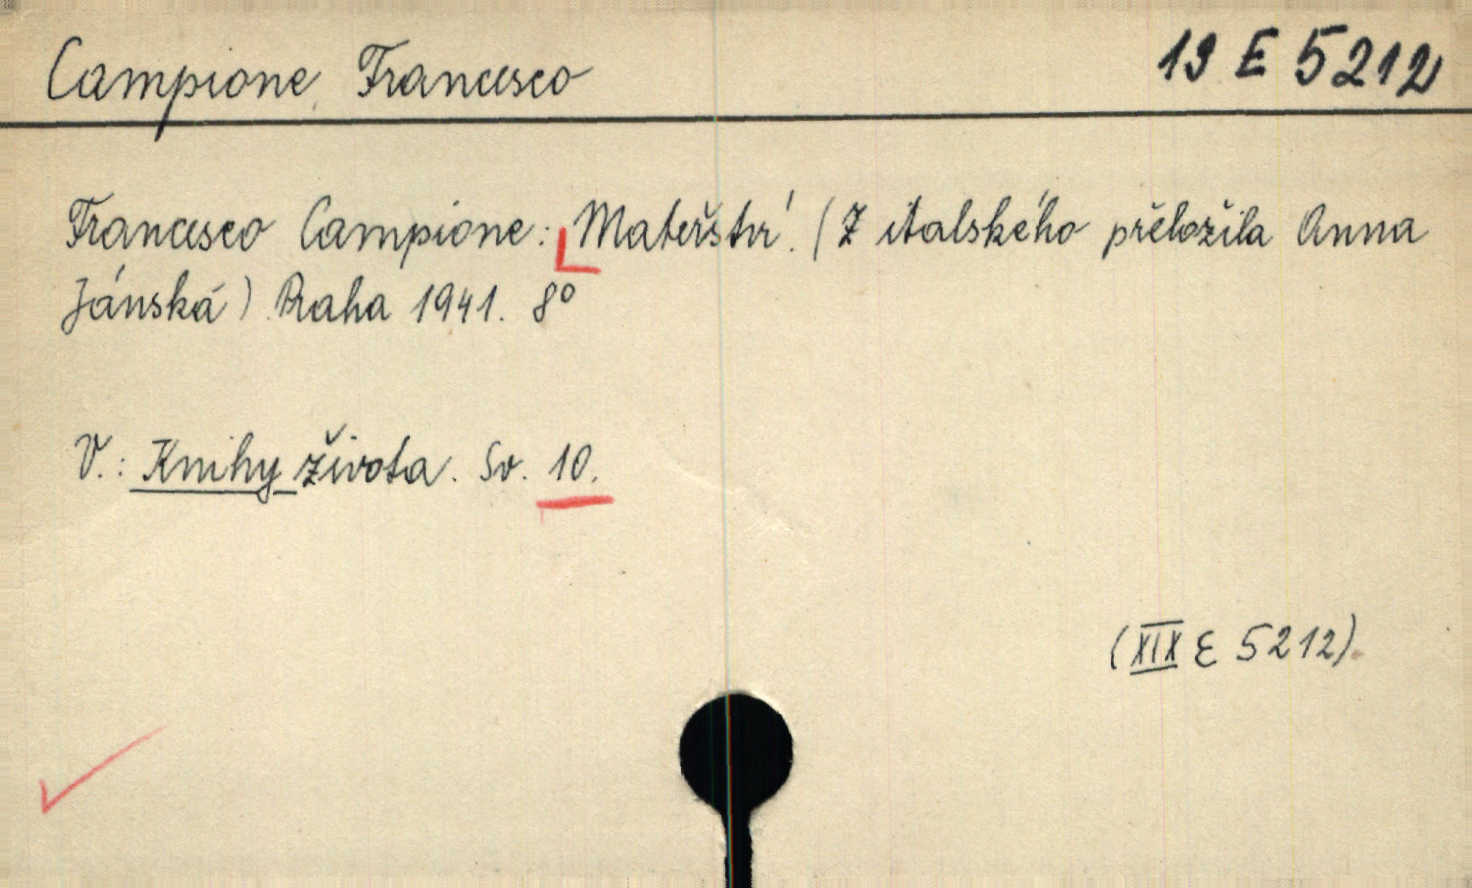 Campione Francesco 19 E 5212
Francesco Campione: Mateřství. (Z italského přeložila Anna
Jánská) Praha 1941. 8°
V.: Knihy života. Sv. 10.
(XIX E 5212).